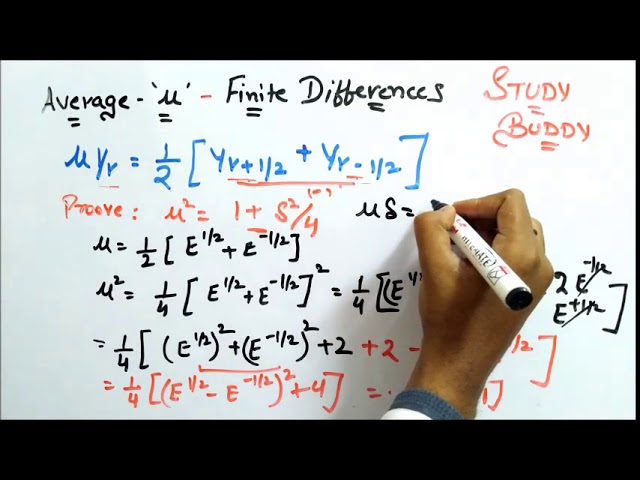 Average - 'μ' - Finite Differences
STUDY
BUDDY
μyᵣ = 1/2 [ yᵣ₊₁/₂ + yᵣ₋₁/₂ ]
Prove: μ² = 1 + δ²/4 μδ =
μ = 1/2 [ E^1/2 + E^-1/2 ]
μ² = 1/4 [ E^1/2 + E^-1/2 ]² = 1/4 [(E^1/ 2 E^-1/2 E^+1/2 ]
= 1/4 [ (E^1/2)² + (E^-1/2)² + 2 + 2 - 1/2 ]
= 1/4 [(E^1/2 - E^-1/2)² + 4] = ]